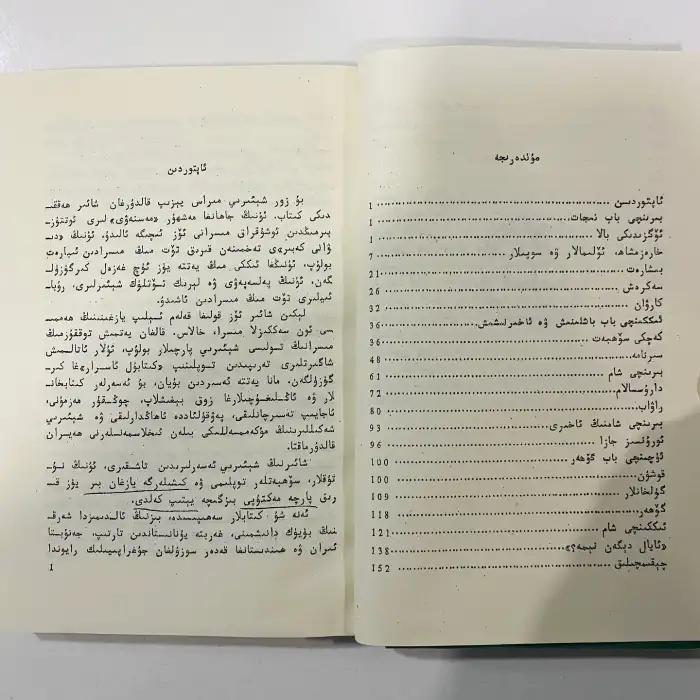 ئاپتوردىن
بۇ زور شېئىرىي مىراس يېزىپ قالدۇرغان شائىر ھەققى-
دىكى كىتاب. ئۇنىڭ جاھانغا مەشھۇر «مەسنەۋى»لىرى ئوتتۇز-
بىرمىڭدىن ئوشۇقراق مىسرانى ئۆز ئىچىگە ئالىدۇ. ئۇنىڭ «دى-
ۋانى كەبىر»ى تەخمىنەن قىرىق تۆت مىڭ مىسرادىن ئىبارەت
بولۇپ، ئۇنىڭغا ئىككى مىڭ يەتتە يۈز ئۈچ غەزەل كىرگۈزۈل-
گەن. ئۇنىڭ پەلسەپەۋى ۋە لېرىك تۆتلۈك شېئىرلىرى، رۇبا-
ئىيلىرى تۆت مىڭ مىسرادىن ئاشىدۇ.
لېكىن شائىر ئۆز قولىغا قەلەم ئېلىپ يازغىنىنىڭ ھەممى-
سى ئون سەككىزلا مىسرا، خالاس. قالغان يەتمىش توققۇزمىڭ
مىسرانىڭ تولىسى شېئىرىي پارچىلار بولۇپ، ئۇلار ئاتالمىش
شاگىرتلىرى تەرىپىدىن توپلىنىپ «كىتابۇل ئاسرار»غا كىر-
گۈزۈلگەن. مانا يەتتە ئەسىردىن بۇيان، بۇ ئەسەرلەر كىتابخان-
لار ۋە ئاڭلىغۇچىلارغا زوق بېغىشلاپ، چوڭقۇر مەزمۇنى،
ئاجايىپ تەسىرچانلىقى، پەۋقۇلئاددە ئاھاڭدارلىقى ۋە شېئىرىي
شەكىللىرىنىڭ مۇكەممەللىكى بىلەن ئىخلاسمەنلەرنى ھەيران
قالدۇرماقتا.
شائىرنىڭ شېئىرىي ئەسەرلىرىدىن تاشقىرى، ئۇنىڭ نۇ-
تۇقلار، سۆھبەتلەر توپلىمى ۋە كىشىلەرگە يازغان بىر يۈز قى-
رىق پارچە مەكتۇپى بىزگىچە يېتىپ كەلدى.
ئەنە شۇ كىتابلار سەھىپىسىدە، بىزنىڭ ئالدىمىزدا شەرق-
نىڭ بۈيۈك دانىشمىنى، غەربتە يۇنانىستاندىن تارتىپ، جەنۇبتا
ئىران ۋە ھىندىستانغا قەدەر سوزۇلغان جۇغراپىيىلىك رايوندا
1
مۇندەرىجە
ئاپتوردىن 1
بىرىنچى باب نىجات 1
ئۆگزىدىكى بالا 1
خارەزمشاھ، ئۆلىمالار ۋە سوپىلار 7
بىشارەت 21
سەكرەش 26
كارۋان 32
ئىككىنچى باب باشلىنىش ۋە ئاخىرلىشىش 36
كەچكى سۆھبەت 36
سىرنامە 48
بىرىنچى شام 61
دارۇسسالام 72
راۋاب 80
بىرىنچى شامنىڭ ئاخىرى 93
ئورۇنسىز جازا 96
ئۈچىنچى باب گۆھەر 100
قوشۇن 100
گۈلخانلار 109
گۆھەر 118
ئىككىنچى شام 121
«ئايال دېگەن نېمە؟» 138
چېقىمچىلىق 152